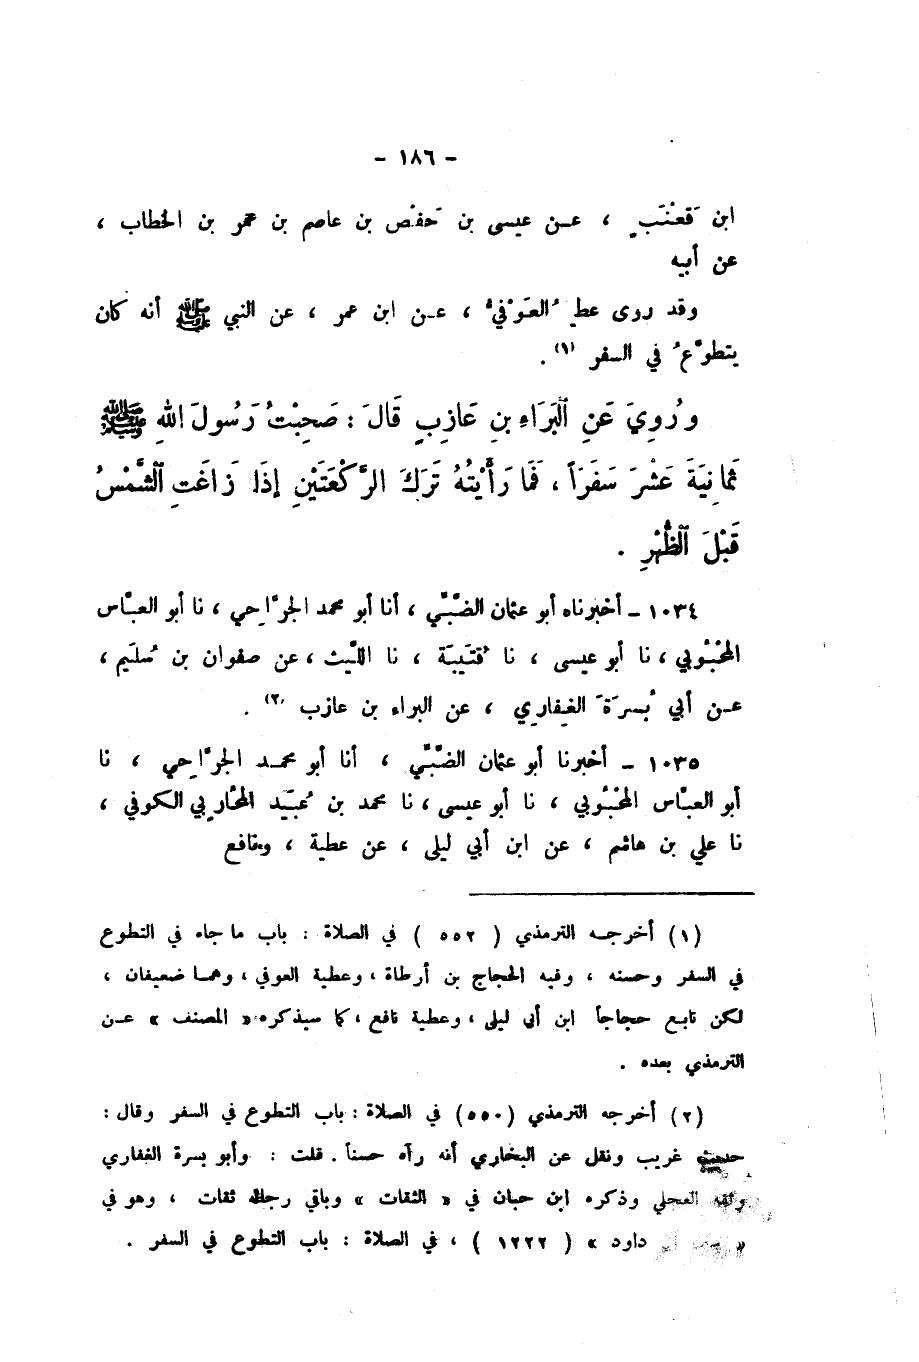 - ١٨٦ -
ابن قَعْنَبٍ ، عن عيسى بن حَفْص بن عاصم بن عمر بن الخطاب ،
عن أبيه
وقد روى عط العَوْفيُّ ، عن ابن عمر ، عن النبي ﷺ أنه كان
يتطوَّعُ في السفر (١) .
ورُوِيَ عَنِ ٱلْبَرَاءِ بنِ عَازِبٍ قَالَ : صَحِبْتُ رَسُولَ اللهِ ﷺ
ثَمَانِيَةَ عَشْرَ سَفَرَاً ، فَمَا رَأَيْتُهُ تَرَكَ الرَّكْعَتَيْنِ إِذَا زَاغَتِ ٱلشَّمْسُ
قَبْلَ ٱلظُّهْرِ .
١٠٣٤ - أخبرناه أبو عثمان الضَّبِّي ، أنا أبو محمد الجرَّاحِي ، نا أبو العبَّاس
المحْبُوبي ، نا أبو عيسى ، نا قُتَيبَة ، نا اللَّيث ، عن صفوان بن سُليَم ،
عن أبي بُسرَةَ الغِفارِي ، عن البراء بن عازب (٢) .
١٠٣٥ - أخبرنا أبو عثمان الضَّبِّي ، أنا أبو محمد الجرَّاحِي ، نا
أبو العبَّاس المحْبُوبي ، نا أبو عيسى ، نا محمد بن عُبَيد المحَاربي الكوفي ،
نا علي بن هاشم ، عن ابن أبي ليلى ، عن عطية ، ونافع
(١) أخرجه الترمذي ( ٥٥٢ ) في الصلاة : باب ما جاء في التطوع
في السفر وحسنه ، وفيه الحجاج بن أرطاة ، وعطية العوفي ، وهما ضعيفان ،
لكن تابع حجاجاً ابن أبي ليلى ، وعطية نافع ، كما سيذكره « المصنف » عن
الترمذي بعده .
(٢) أخرجه الترمذي (٥٥٠) في الصلاة : باب التطوع في السفر وقال :
حديث غريب ونقل عن البخاري أنه رآه حسناً . قلت : وأبو بسرة الغفاري
وثقه العجلي وذكره ابن حبان في « الثقات » وباقي رجاله ثقات ، وهو في
« داود » ( ١٢٢٢ ) ، في الصلاة : باب التطوع في السفر .